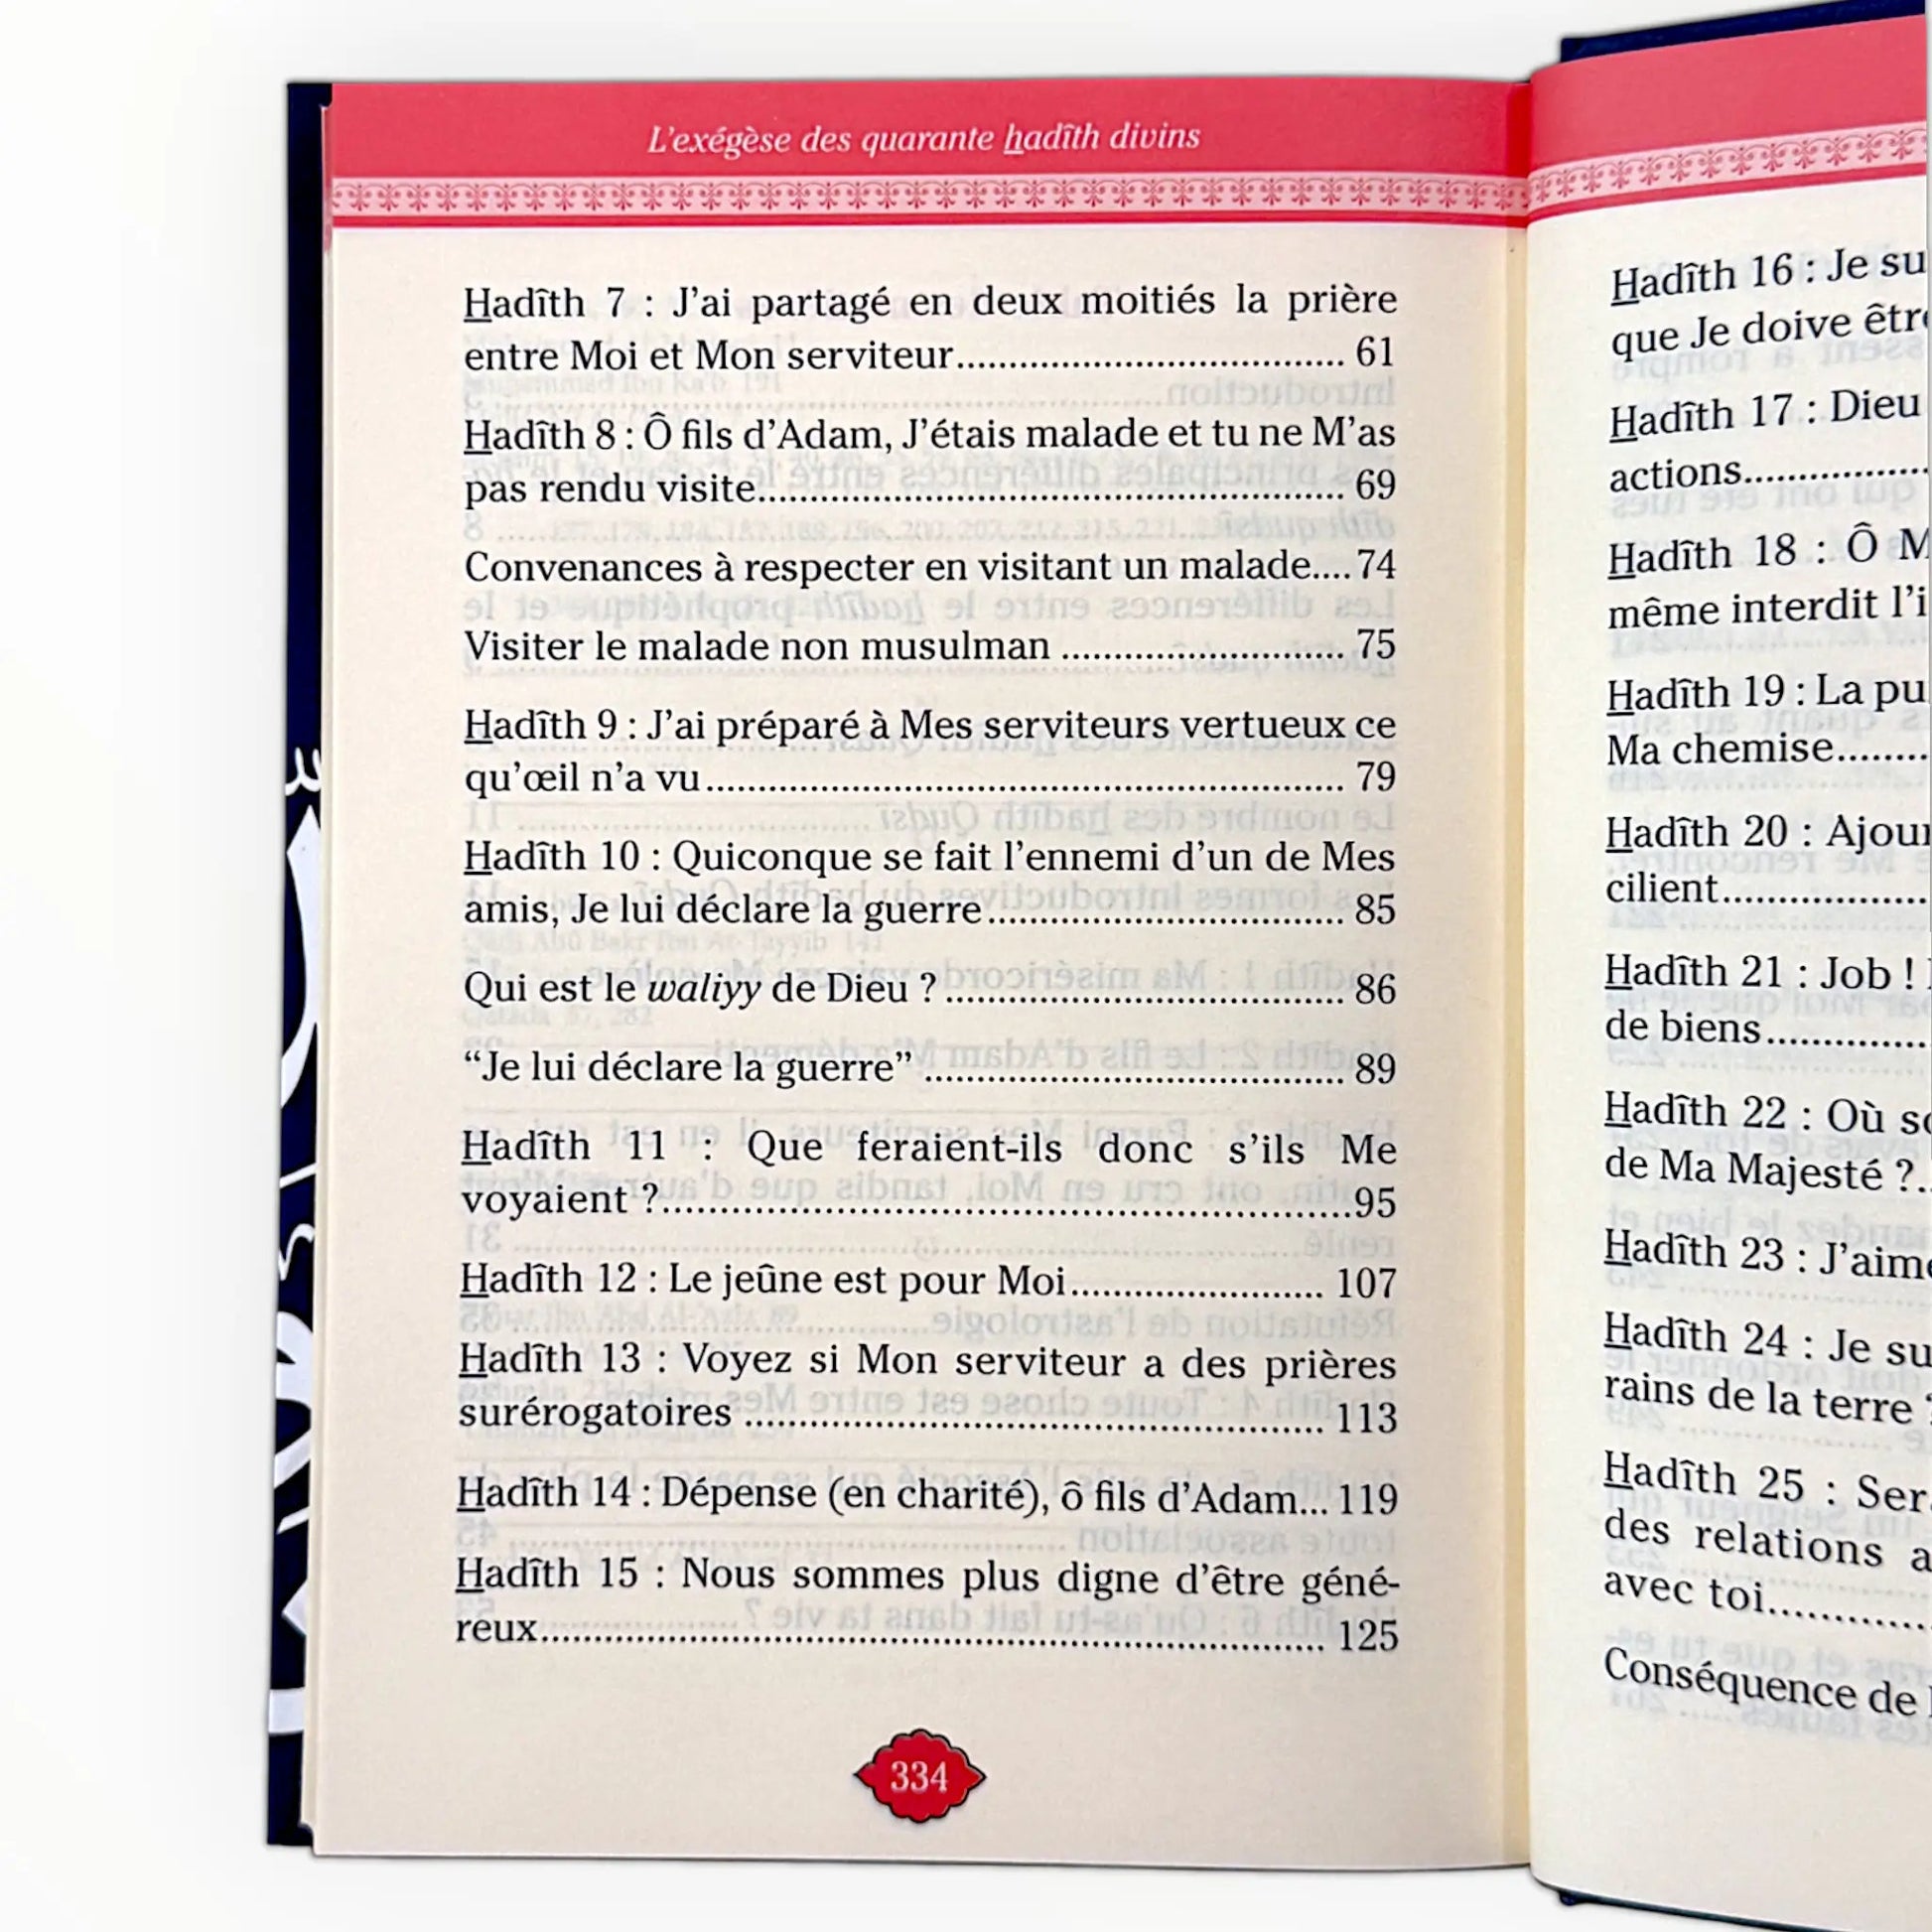 L'exégèse des quarante hadîth divins
Hadîth 7 : J'ai partagé en deux moitiés la prière
entre Moi et Mon serviteur.................................... 61
Hadîth 8 : Ô fils d'Adam, J'étais malade et tu ne M'as
pas rendu visite........................................................ 69
Convenances à respecter en visitant un malade....74
Visiter le malade non musulman ........................... 75
Hadîth 9 : J'ai préparé à Mes serviteurs vertueux ce
qu'œil n'a vu............................................................. 79
Hadîth 10 : Quiconque se fait l'ennemi d'un de Mes
amis, Je lui déclare la guerre.................................. 85
Qui est le waliyy de Dieu ?...................................... 86
“Je lui déclare la guerre”........................................ 89
Hadîth 11 : Que feraient-ils donc s'ils Me
voyaient ?..................................................................95
Hadîth 12 : Le jeûne est pour Moi........................ 107
Hadîth 13 : Voyez si Mon serviteur a des prières
surérogatoires ....................................................... 113
Hadîth 14 : Dépense (en charité), ô fils d'Adam... 119
Hadîth 15 : Nous sommes plus digne d'être géné-
reux.......................................................................... 125
334
Hadîth 16 : Je
que Je doive
Hadîth 17 : Dieu
actions..................
Hadîth 18 : Ô
même interdit
Hadîth 19 : La
Ma chemise.........
Hadîth 20 :
cilient...................
Hadîth 21 : Job !
de biens...............
Hadîth 22 : Où
de Ma Majesté ?..
Hadîth 23 :
Hadîth 24 : Je
rains de la terre
Hadîth 25 :
des relations
avec toi...............
Conséquence de